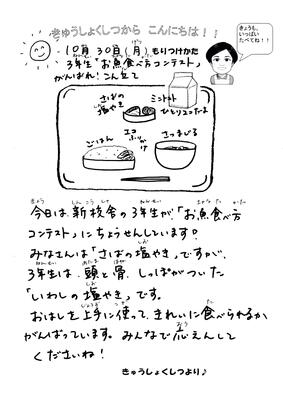 きゅうしょくしつから こんにちは！！
きょうも、
いっぱい
たべてね！！
10月 30日(月) もりつけかた
3年生「お魚食べ方コンテスト」
がんばれ！こん立て
さばの
塩やき
ミニトマト
ひとり2こだよ
ごはん
エコ
ふりかけ
さつまじる
今日は、新校舎の3年生が、「お魚食べ方
コンテスト」にちょうせんしています。
みなさんは「さばの塩やき」ですが、
3年生は、頭と骨、しっぽがついた
「いわしの塩やき」です。
おはしを上手に使って、きれいに食べられるか
がんばっています。みんなで応えんして
くださいね！
きゅうしょくしつより♪